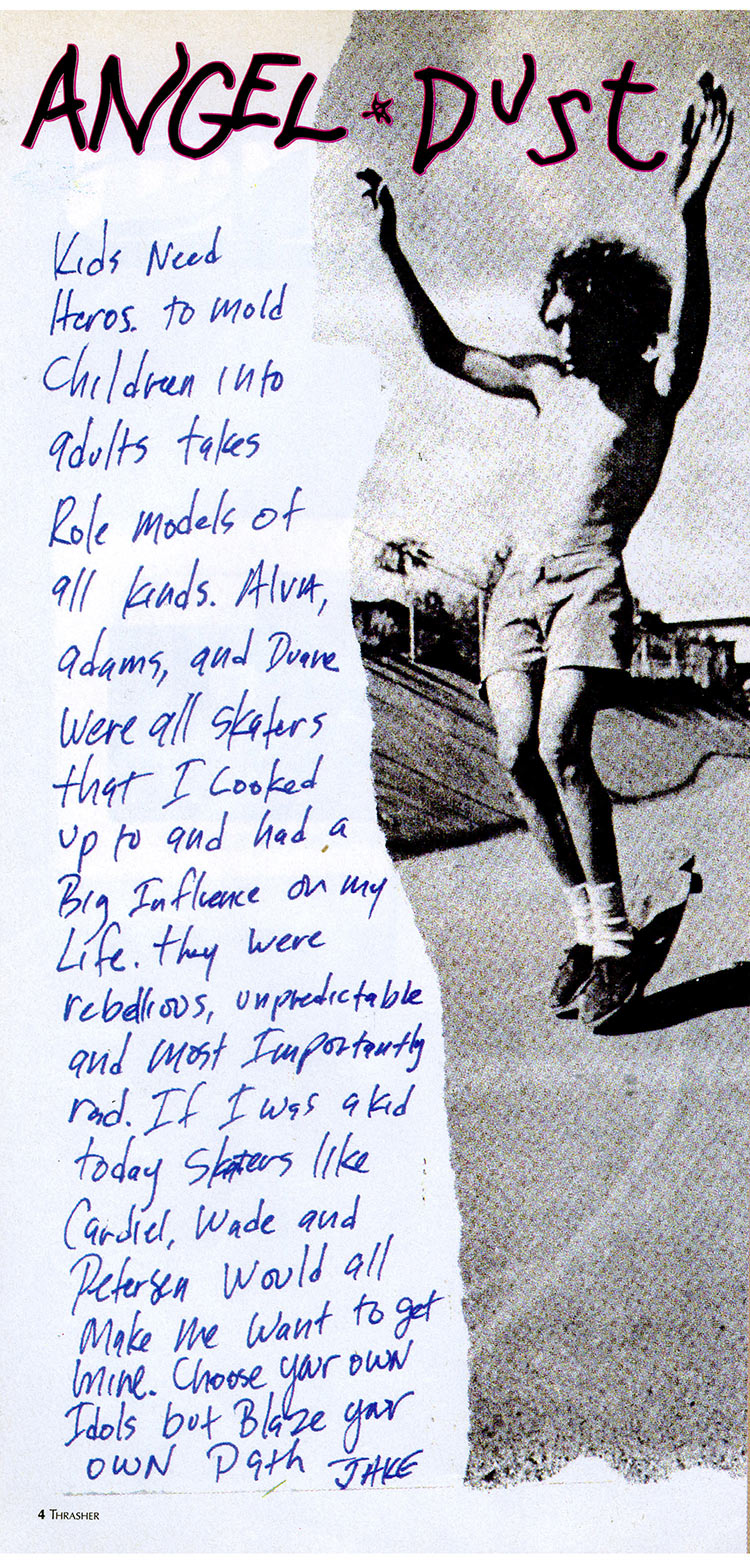 ANGEL ☆ DUST
Kids Need
Heros. to mold
Children into
adults takes
Role models of
all kinds. Alva,
adams, and Duane
Were all skaters
that I Looked
up to and had a
Big Influence on my
Life. they were
rebellious, unpredictable
and most Importantly
rad. If I was a kid
today Skaters like
Cardiel, Wade and
Petersen Would all
Make me Want to get
Mine. Choose your own
Idols but Blaze your
OWN Path JAKE
4 THRASHER